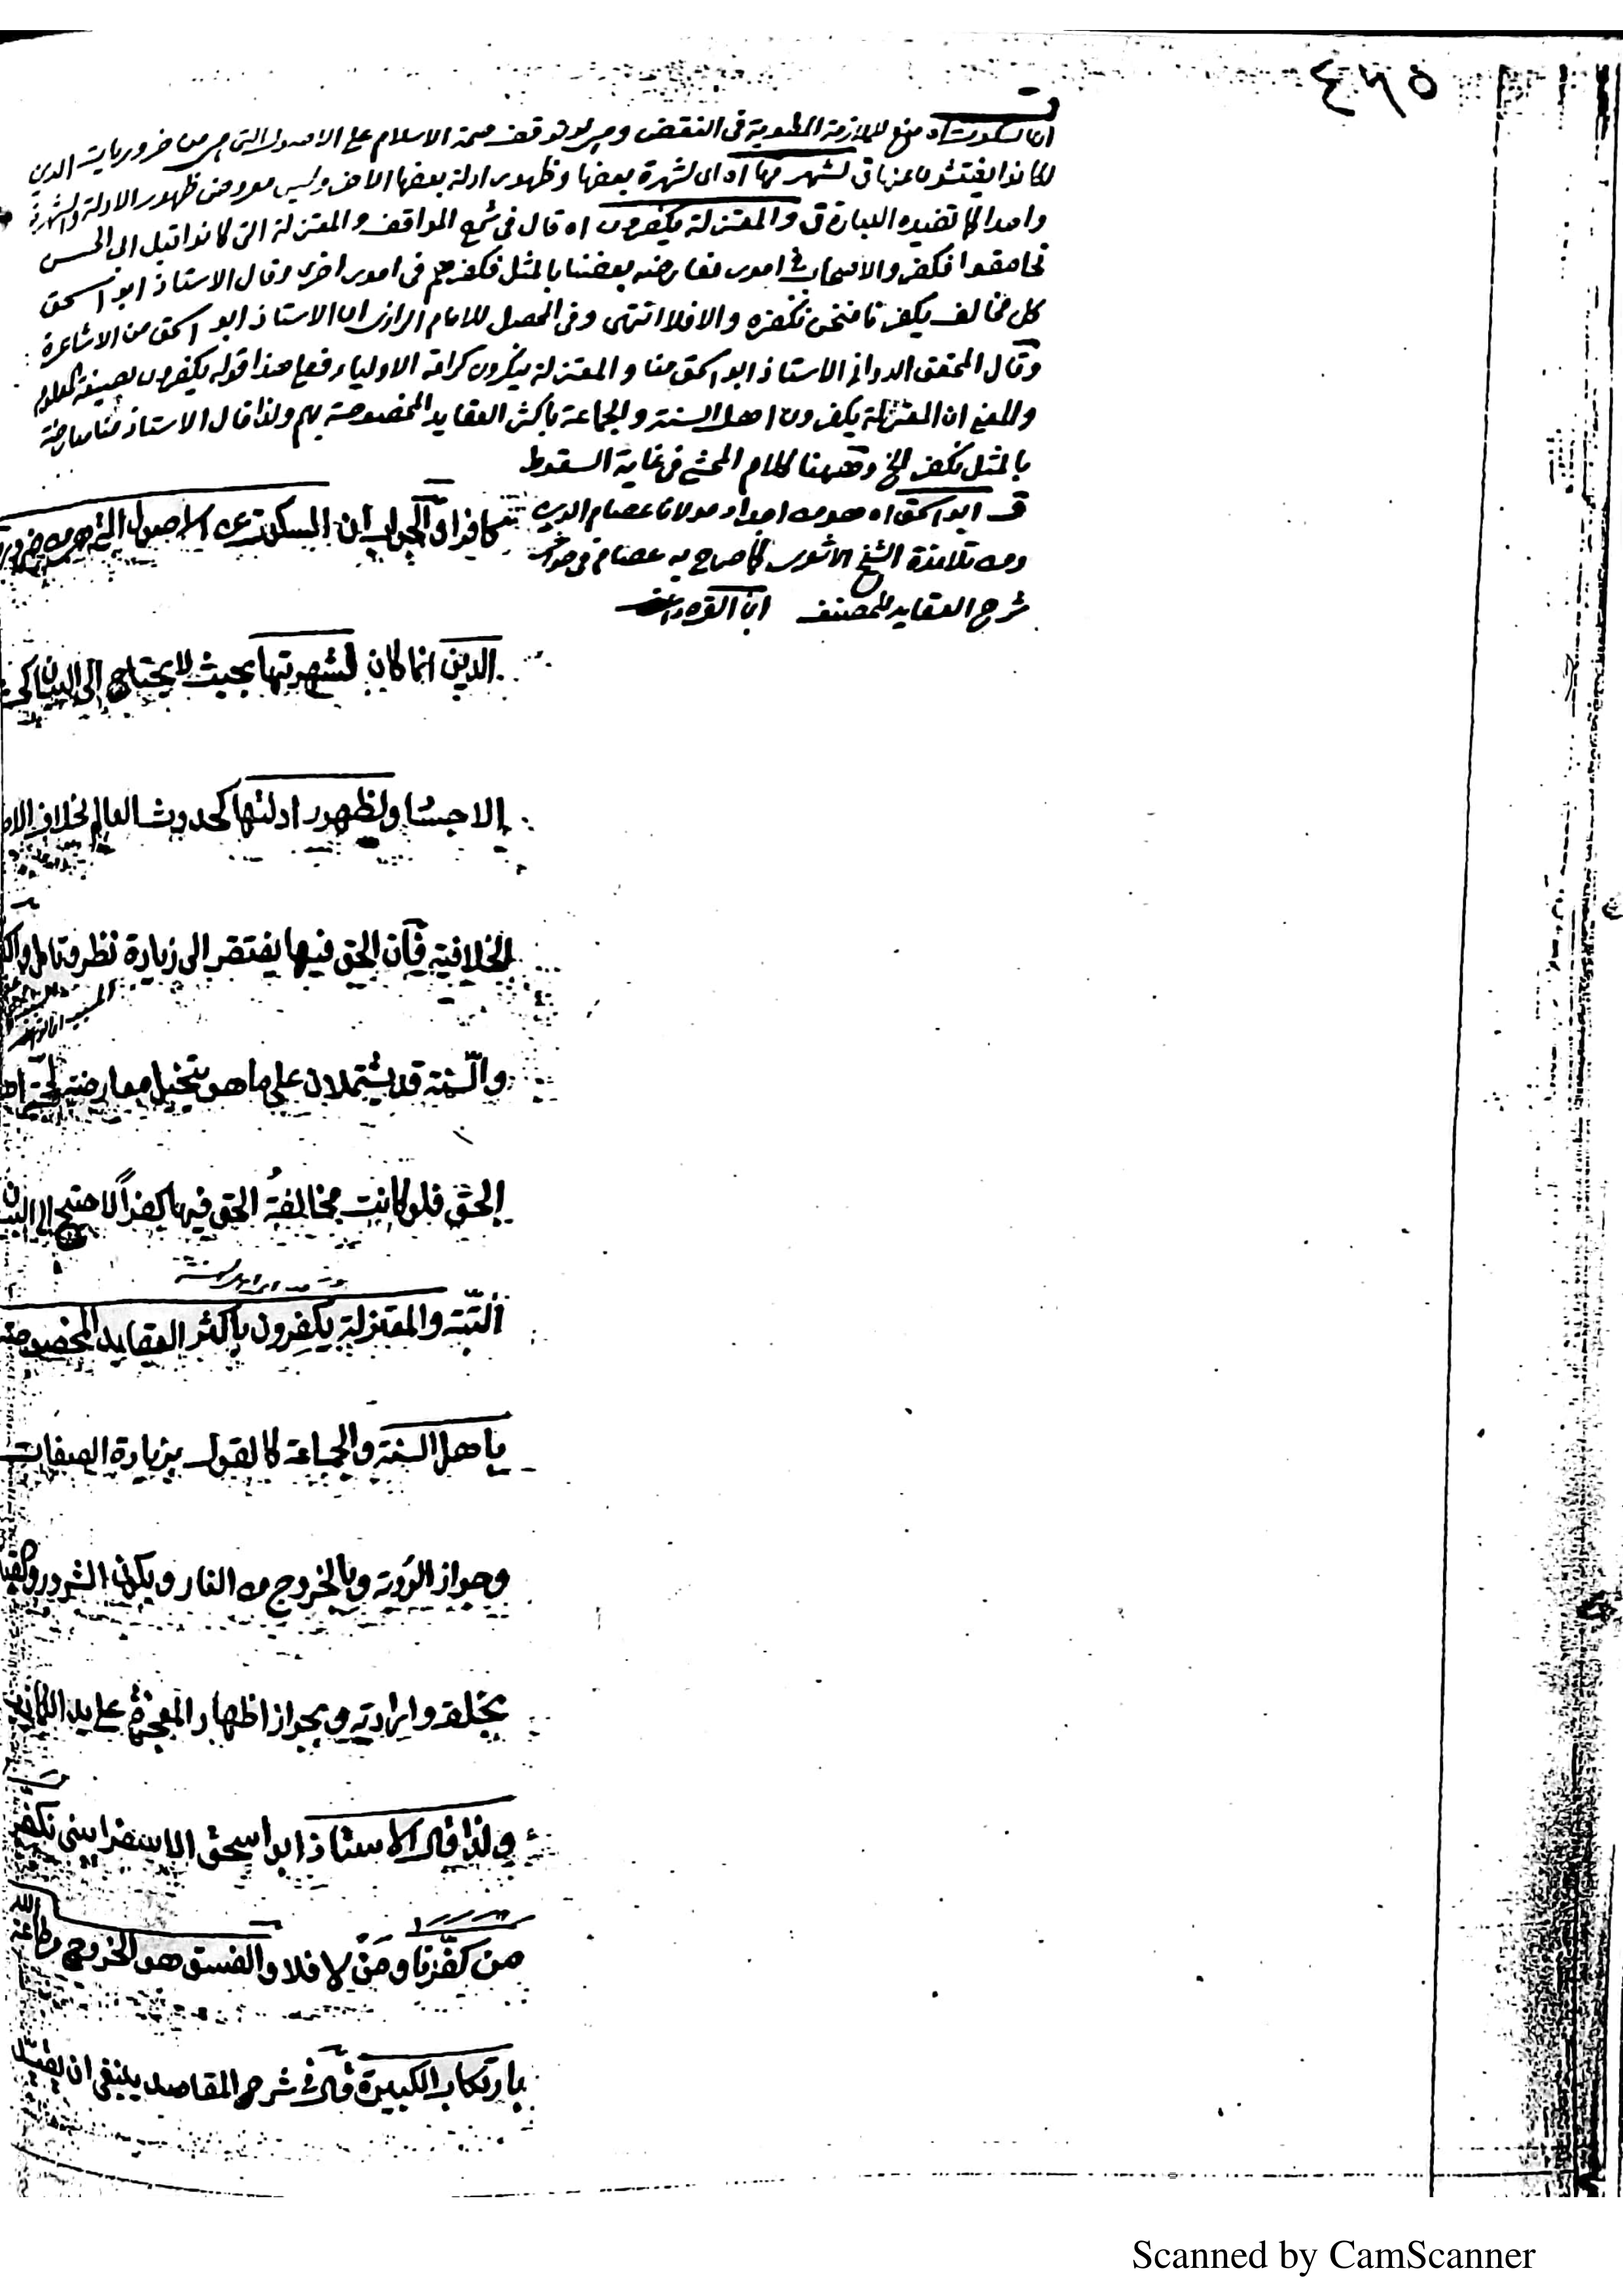 ٤٦٥
ان السكوت اه منع للملازمة المطوية في النقض وهي لو توقف صحة الاسلام على الاصول التي هي من ضروريات الدين
لكانوا يفتشون عنها ق لشهرتها اه اى لشهرة بعضها وظهور ادلة بعضها الآخر وليس معروض ظهور الادلة والشهرة
واحدا كما تفيده العبارة ق والمعتزلة يكفرون اه قال في شرح المواقف والمعتزلة التي كانوا قبل ابى الحسين
تحامقوا فكفروا الاصحاب في امور فعارضه بعضنا بالمثل فكفرهم في امور اخرى وقال الاستاذ ابو اسحق
كل مخالف يكفرنا فنحن نكفره والا فلا انتهى وفي المحصل للامام الرازي ان الاستاذ ابو اسحق من الاشاعرة
وقال المحقق الدواني الاستاذ ابو اسحق منا والمعتزلة ينكرون كرامة الاولياء فعلى هذا قوله يكفرون بصيغة المعلوم
والمعنى ان المعتزلة يكفرون اهل السنة والجماعة باكثر العقايد المخصوصة بهم ولذا قال الاستاذ منا معارضة
بالمثل نكفر الخ وههنا كلام المحشى في غاية السقوط
ق ابو اسحق اه هو من اجداد مولانا عصام الدين
ومن تلامذة الشيخ الاشعري كما صرح به عصام في حواشى
شرح العقايد للمصنف ابن القره داغى
كافرا ق الجواب ان السكوت عن الاصول التي هي من
الدين انما كان لشهرتها بحيث لا يحتاج الى البيان
ولظهور ادلتها كحدوث العالم بخلاف
الخلافية فان الحق فيها يفتقر الى زيادة نظر وتامل
والسنة قد يشتملان على ما هو يتخيل معارضته
الحق فلو كانت مخالفة الحق فيها كفرا لاحتيج الى البيان
البتة والمعتزلة يكفرون باكثر العقايد المخصوصة
باهل السنة والجماعة كالقول بزيادة الصفات
وجواز الرؤية وبالخروج من النار وبكون الشرور
بخلقه وارادته وبجواز اظهار المعجزة على يد الكاذب
ولذا قال الاستاذ ابو اسحق الاسفرايني نكفر
من كفرنا ومن لا فلا والفسق هو الخروج من طاعة الله
بارتكاب الكبيرة قال في شرح المقاصد ينبغي ان يقيد
Scanned by CamScanner